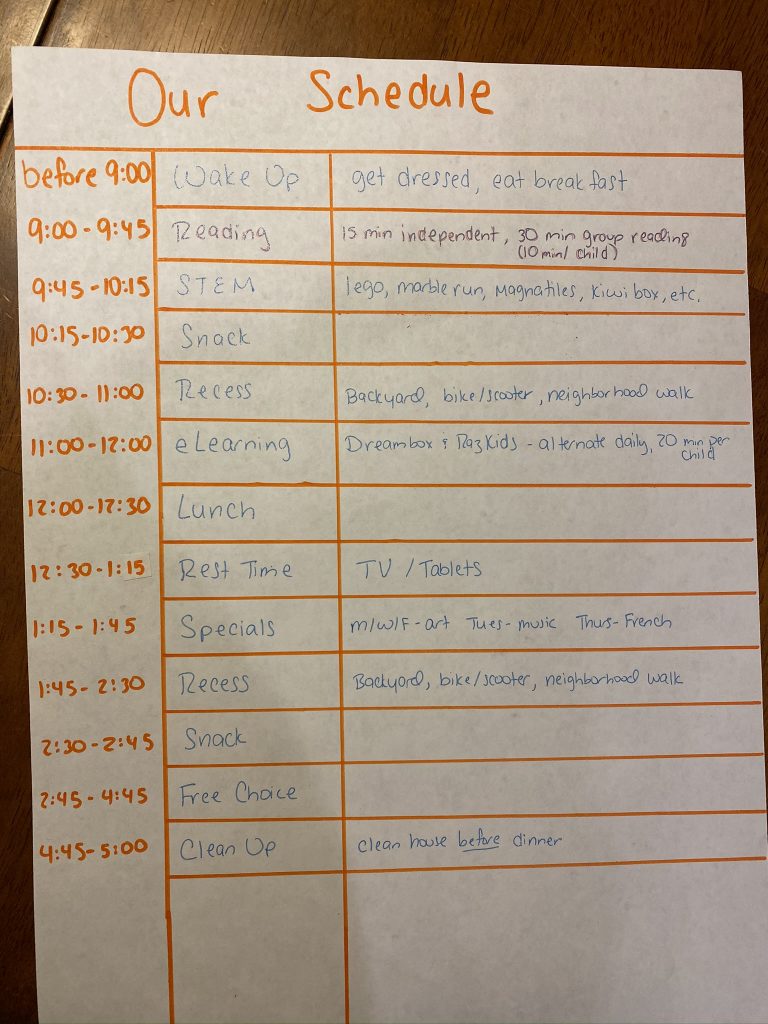 Our Schedule
before 9:00 Wake Up get dressed, eat breakfast
9:00 - 9:45 Reading 15 min independent, 30 min group reading
(10 min/ child)
9:45 - 10:15 STEM lego, marble run, Magnatiles, Kiwi box, etc.
10:15 - 10:30 Snack
10:30 - 11:00 Recess Backyard, bike/scooter, neighborhood walk
11:00 - 12:00 eLearning Dreambox & RazKids - alternate daily, 20 min per
child
12:00 - 12:30 Lunch
12:30 - 1:15 Rest Time TV / Tablets
1:15 - 1:45 Specials M/W/F - art Tues - music Thurs - French
1:45 - 2:30 Recess Backyard, bike/scooter, neighborhood walk
2:30 - 2:45 Snack
2:45 - 4:45 Free Choice
4:45 - 5:00 Clean Up clean house before dinner